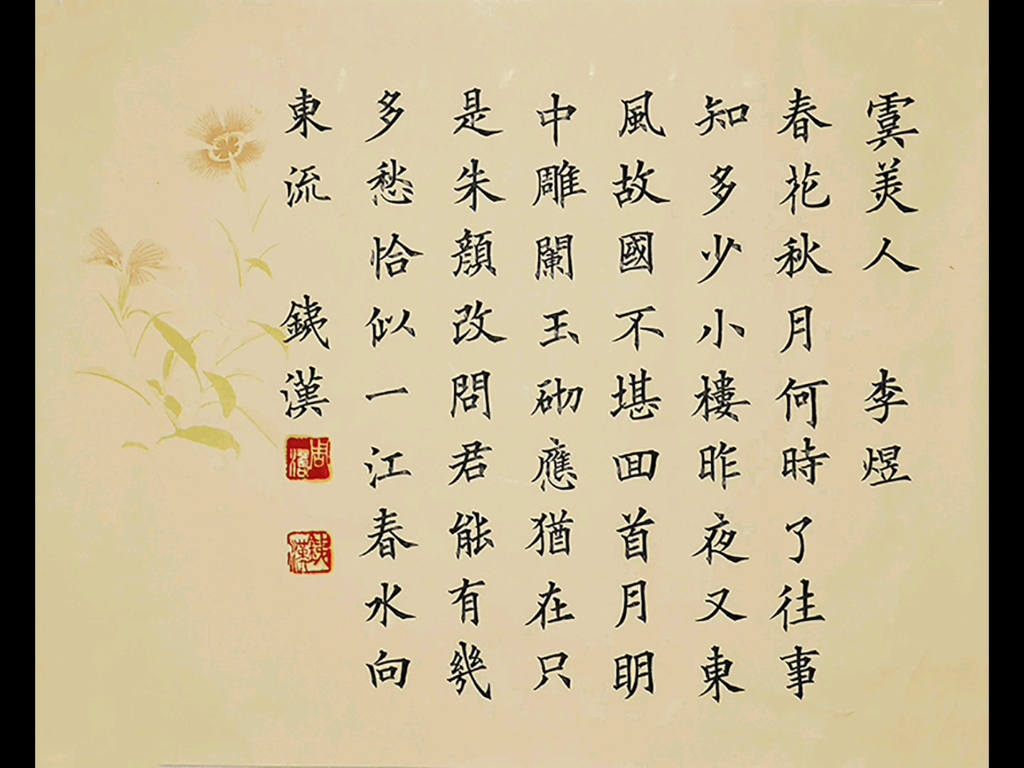 虞美人 李煜
春花秋月何時了往事
知多少小樓昨夜又東
風故國不堪回首月明
中雕闌玉砌應猶在只
是朱顏改問君能有幾
多愁恰似一江春水向
東流 銕漢
周
銕漢